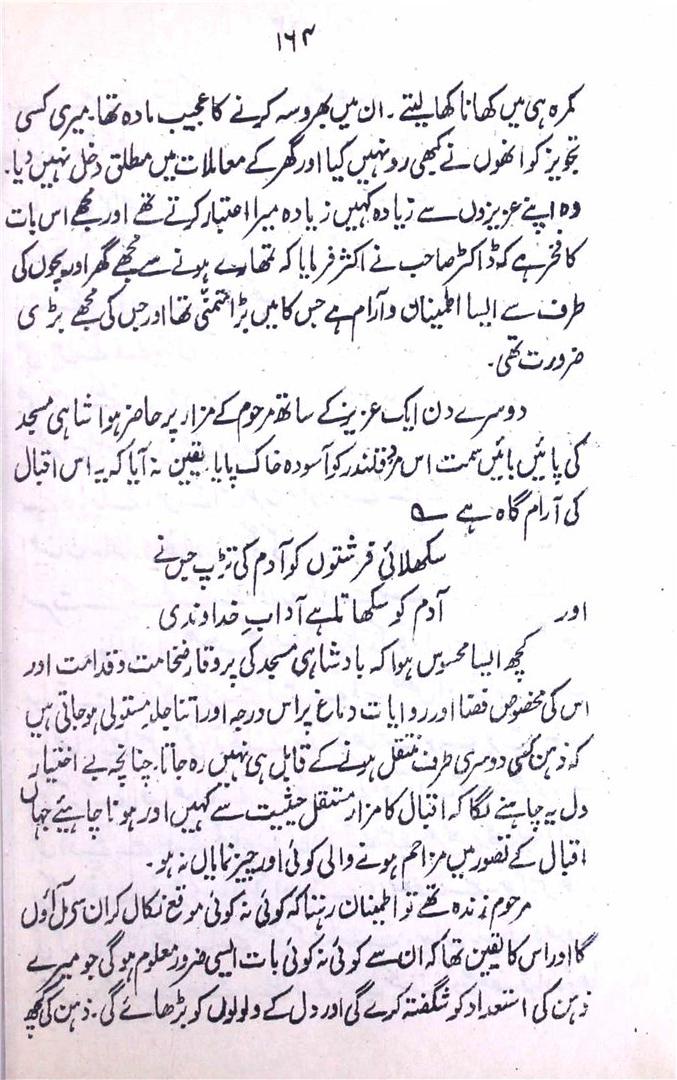 ۱۶۴
کمرہ ہی میں کھانا کھا لیتے ۔ ان میں بھروسہ کرنے کا عجیب مادہ تھا۔ میری کسی
تجویز کو انھوں نے کبھی رد نہیں کیا اور گھر کے معاملات میں مطلق دخل نہیں دیا۔
وہ اپنے عزیزوں سے زیادہ کہیں زیادہ میرا اعتبار کرتے تھے اور مجھے اس بات
کا فخر ہے کہ ڈاکٹر صاحب نے اکثر فرمایا کہ تمھارے ہونے سے مجھے گھر اور بچوں کی
طرف سے ایسا اطمینان و آرام ہے جس کا میں بڑا متمنّی تھا اور جس کی مجھے بڑی
ضرورت تھی۔
دوسرے دن ایک عزیز کے ساتھ مرحوم کے مزار پر حاضر ہوا شاہی مسجد
کی پائیں بائیں سمت اس مردِ قلندر کو آسودہ خاک پایا۔ یقین نہ آیا کہ یہ اس اقبال
کی آرام گاہ ہے ؎
سکھلائی فرشتوں کو آدم کی تڑپ جس نے
اور آدم کو سکھاتا ہے آدابِ خداوندی
کچھ ایسا محسوس ہوا کہ بادشاہی مسجد کی پروقار ضخامت و قدامت اور
اس کی مخصوص فضا اور روایات دماغ پر اس درجہ اور اتنا جلد مستولی ہو جاتی ہیں
کہ ذہن کسی دوسری طرف منتقل ہونے کے قابل ہی نہیں رہ جاتا۔ چنانچہ بے اختیار
دل یہ چاہنے لگا کہ اقبال کا مزار مستقل حیثیت سے کہیں اور ہونا چاہیئے جہاں
اقبال کے تصور میں مزاحم ہونے والی کوئی اور چیز نمایاں نہ ہو۔
مرحوم زندہ تھے تو اطمینان رہتا کہ کوئی نہ کوئی موقع نکال کر ان سے مل آؤں
گا اور اس کا یقین تھا کہ ان سے کوئی نہ کوئی بات ایسی ضرور معلوم ہوگی جو میرے
ذہن کی استعداد کو شگفتہ کرے گی اور دل کے ولولوں کو بڑھائے گی۔ ذہن کی کچھ